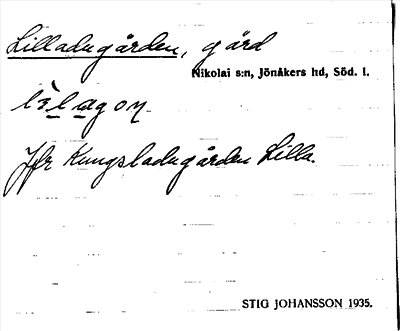 Lilladugården, gård
Nikolai s:n, Jönåkers hd, Söd. l.
Jfr Kungsladugården Lilla.
STIG JOHANSSON 1935.